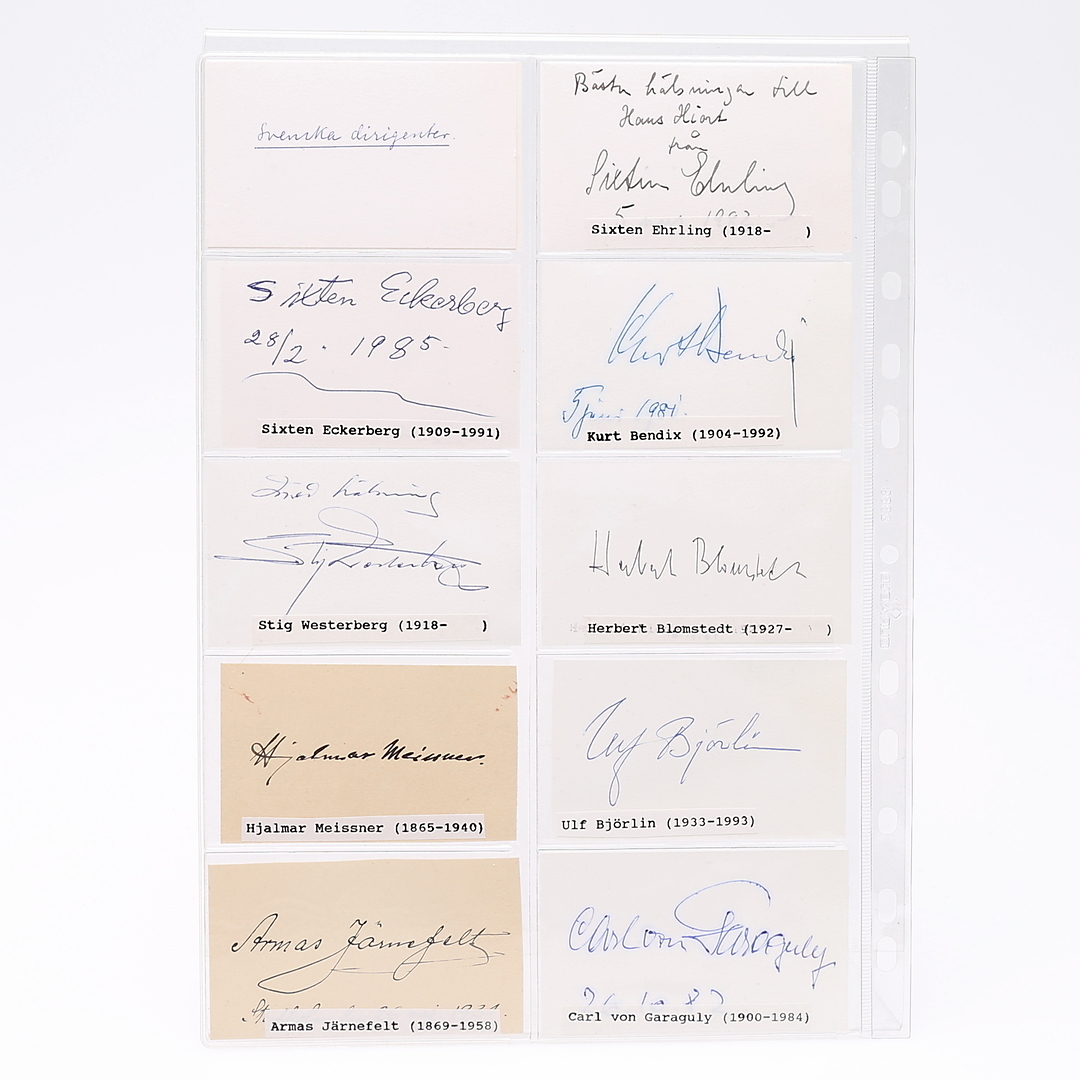 Svenska dirigenter.
Bästa hälsningar till
Hans Hjort
från
Sixten Ehrling
5 1983
Sixten Ehrling (1918- )
Sixten Eckerberg
28/2 · 1985-
Sixten Eckerberg (1909-1991)
Kurt Bendix
5 juni 1981.
Kurt Bendix (1904-1992)
Med hälsning
Stig Westerberg
Stig Westerberg (1918- )
Herbert Blomstedt
Herbert Blomstedt (1927- )
Hjalmar Meissner.
Hjalmar Meissner (1865-1940)
Ulf Björlin
Ulf Björlin (1933-1993)
Armas Järnefelt
Armas Järnefelt (1869-1958)
Carl von Garaguly
Carl von Garaguly (1900-1984)